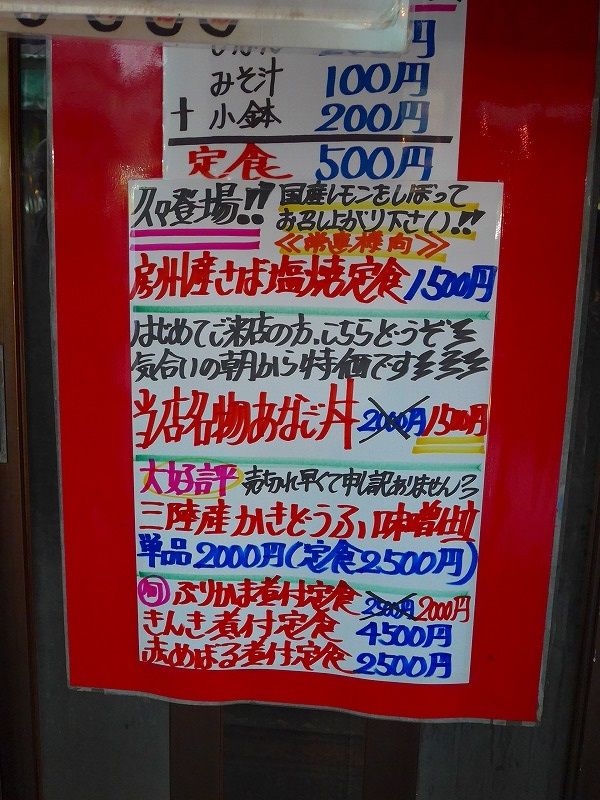 円
みそ汁 100円
＋ 小鉢 200円
定食 500円
久々登場!! 国産レモンをしぼって
お召し上がり下さい!!
房州産さば塩焼定食 1500円
はじめてご来店の方、こちらどうぞ
気合いの朝から特価です
当店名物あなご丼 2000円 1500円
大好評 売切れ早くて申し訳ありません
三陸産かきどうふ
単品2000円(定食2500円)
旬 ぶりかま煮付定食 2500円 2000円
きんき煮付定食 4500円
赤めばる煮付定食 2500円